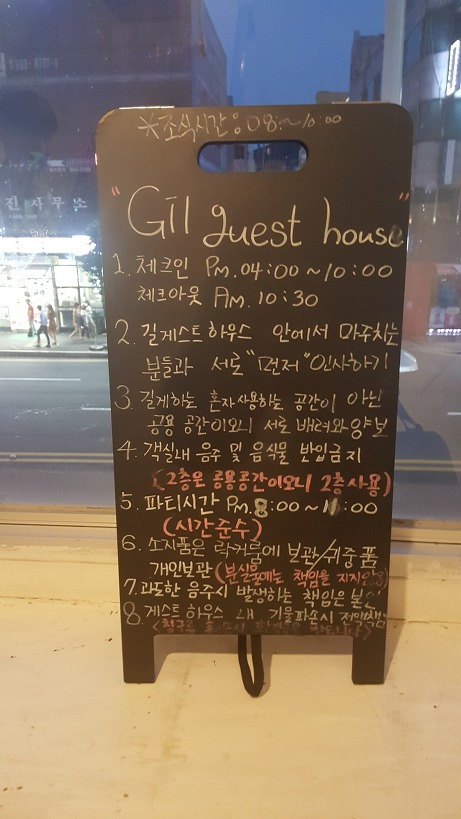 ※조식시간 08:~10:00
"GIl guest house"
1. 체크인 PM. 04:00~10:00
체크아웃 AM. 10:30
2. 길게스트하우스 안에서 마주치는
분들과 서로 "먼저" 인사하기
3. 길게하는 혼자사용하는 공간이 아닌
공용 공간이오니 서로 배려와 양보
4. 객실내 음주 및 음식물 반입금지
(2층은 공용공간이오니 2층사용)
5. 파티시간 PM. 8:00~11:00
(시간준수)
6. 소지품은 락커룸에 보관/귀중품
개인보관 (분실물에는 책임을 지지않음)
7. 과도한 음주시 발생하는 책임은 본인
8. 게스트 하우스 내 기물파손시 전액책임
진사무소